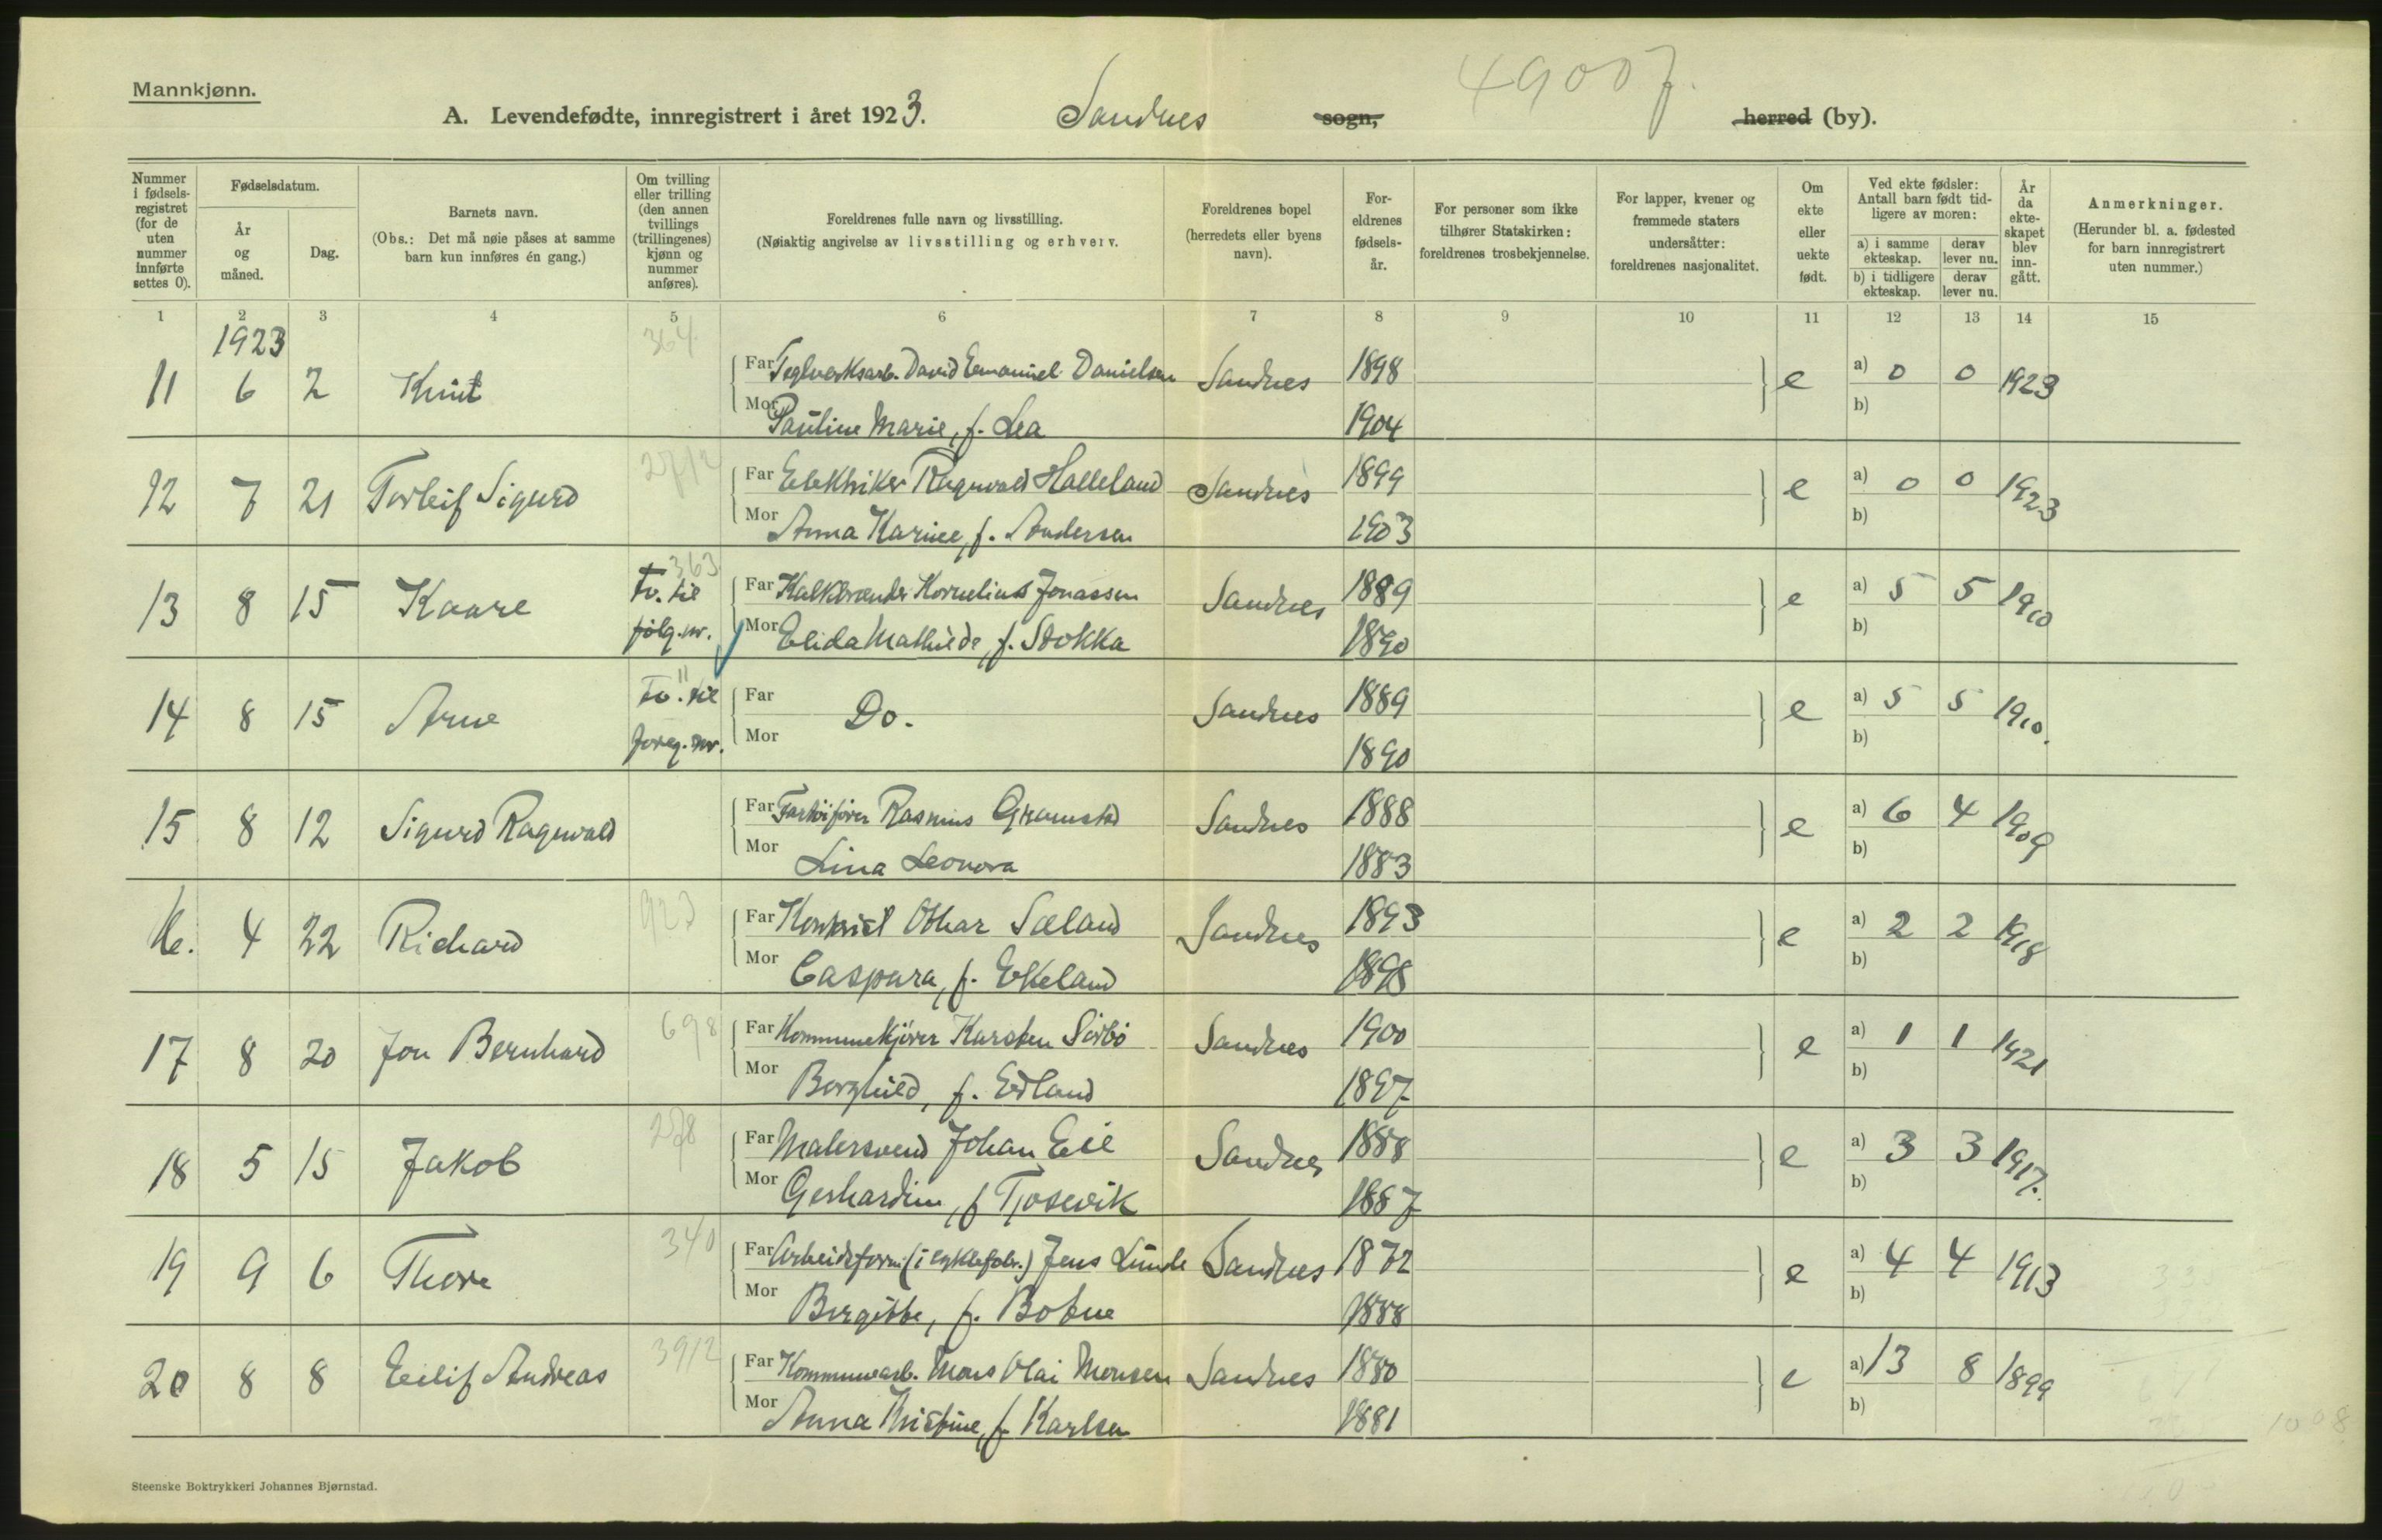 Mannkjønn.
A. Levendefødte, innregistrert i året 1923. Sandnes sogn, 4900 f. herred (by).
Nummer i fødselsregistret (for de uten nummer innførte settes 0).
Fødselsdatum.
År og måned.
Dag.
Barnets navn.
(Obs.: Det må nøie påses at samme barn kun innføres én gang.)
Om tvilling eller trilling (den annen tvillings (trillingenes) kjønn og nummer anføres).
Foreldrenes fulle navn og livsstilling.
(Nøiaktig angivelse av livsstilling og erhverv.
Foreldrenes bopel (herredets eller byens navn).
Foreldrenes fødselsår.
For personer som ikke tilhører Statskirken: foreldrenes trosbekjennelse.
For lapper, kvener og fremmede staters undersåtter: foreldrenes nasjonalitet.
Om ekte eller uekte født.
Ved ekte fødsler: Antall barn født tidligere av moren:
a) i samme ekteskap. derav lever nu.
b) i tidligere ekteskap. derav lever nu.
År da ekteskapet blev inngått.
Anmerkninger.
(Herunder bl. a. fødested for barn innregistrert uten nummer.)
1 2 3 4 5 6 7 8 9 10 11 12 13 14 15
1923 364
11 6 2 Knut Far Teglverksarb. David Emanuel Danielsen Sandnes 1898 e a) 0 0 1923
Mor Pauline Marie, f. Lea 1904 b)
12 7 21 Torleif Sigurd 2712 Far Elektriker Ragnvald Halleland Sandnes 1899 e a) 0 0 1923
Mor Anna Karine, f. Andersen 1903 b)
363
13 8 15 Kaare Tv. til Far Kalkbrænder Kornelius Jonassen Sandnes 1889 e a) 5 5 1910
følg. nr. Mor Elida Mathilde, f. Stokka 1890 b)
"
14 8 15 Arne Tv. til Far Do. Sandnes 1889 e a) 5 5 1910.
foreg. nr. Mor 1890 b)
15 8 12 Sigurd Ragnvald Far Fartøifører Rasmus Gramstad Sandnes 1888 e a) 6 4 1909
Mor Lina Leonora 1883 b)
16. 4 22 Richard 923 Far Kontrist Othar Sæland Sandnes 1893 e a) 2 2 1918
Mor Caspara, f. Ekeland 1898 b)
17 8 20 Jon Bernhard 698 Far Kommunekjører Karsten Sørbø Sandnes 1900 e a) 1 1 1921
Mor Borghild, f. Edland 1897 b)
18 5 15 Jakob 278 Far Malersvend Johan Eie Sandnes 1888 e a) 3 3 1917.
Mor Gerhardine, f. Tjosevik 1887 b)
19 9 6 Thore 340 Far Arbeidsform. (i cyklefabr.) Jens Lunde Sandnes 1872 e a) 4 4 1913
Mor Bergitte, f. Bokne 1888 b)
20 8 8 Eilif Andreas 3912 Far Kommunearb. Mons Olai Monsen Sandnes 1880 e a) 13 8 1899
Mor Anna Kristine, f. Karlsen 1881 b)
1008
Steenske Boktrykkeri Johannes Bjørnstad.